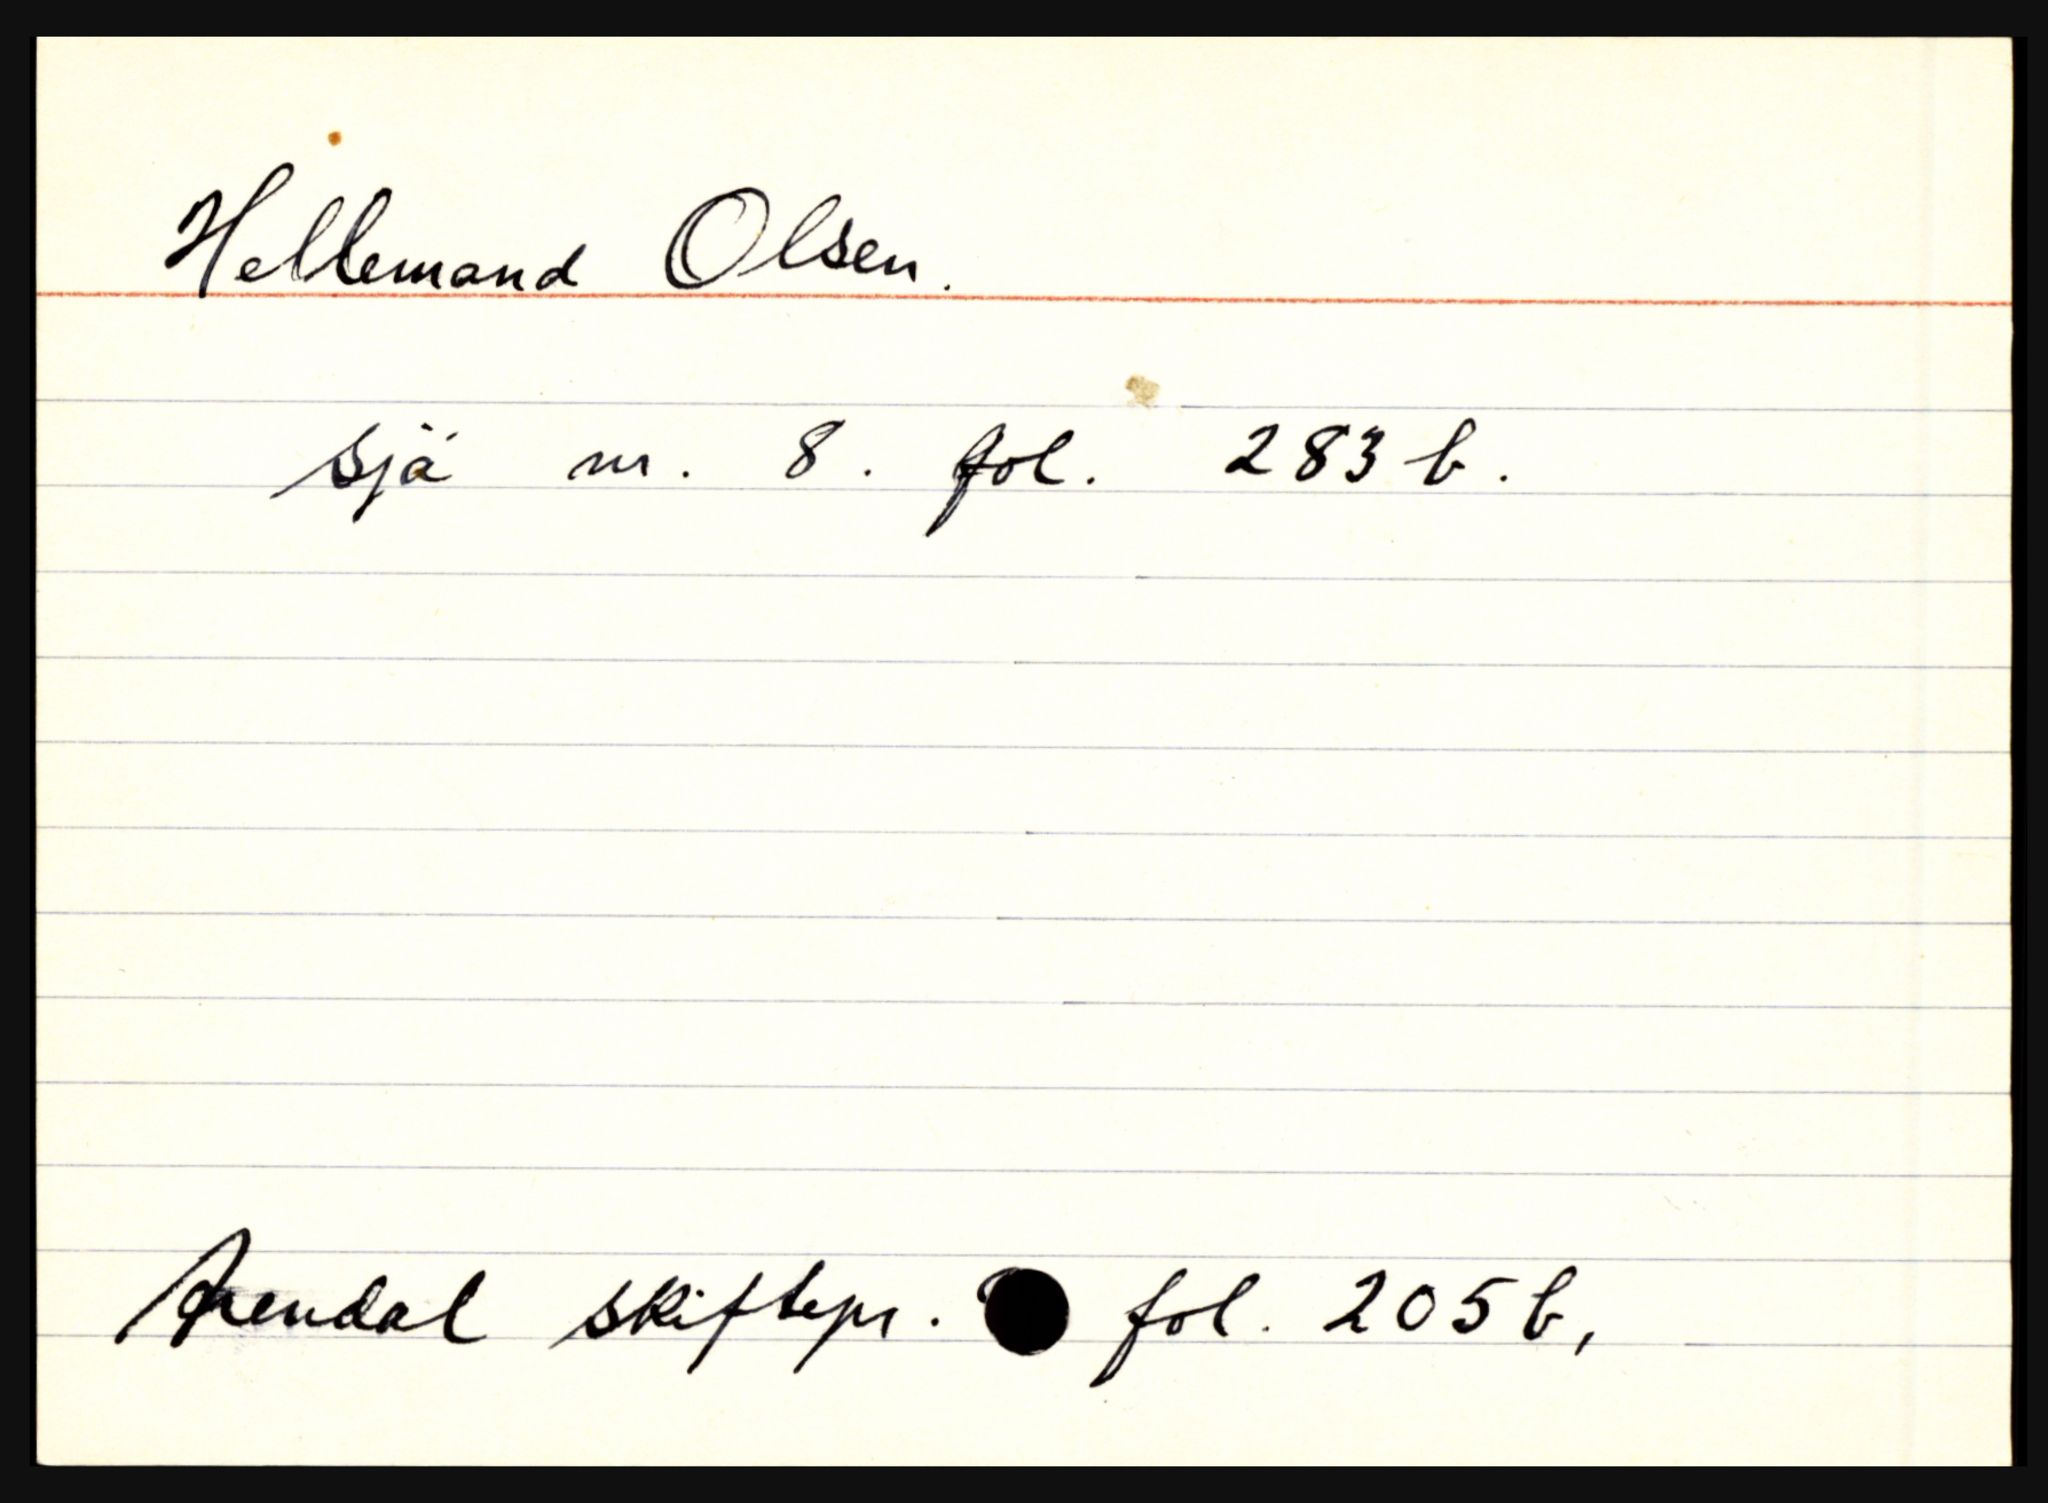 Hellemand Olsen.
sjå nr. 8. fol. 283 b.
Arendal skiftepr. fol. 205 b,